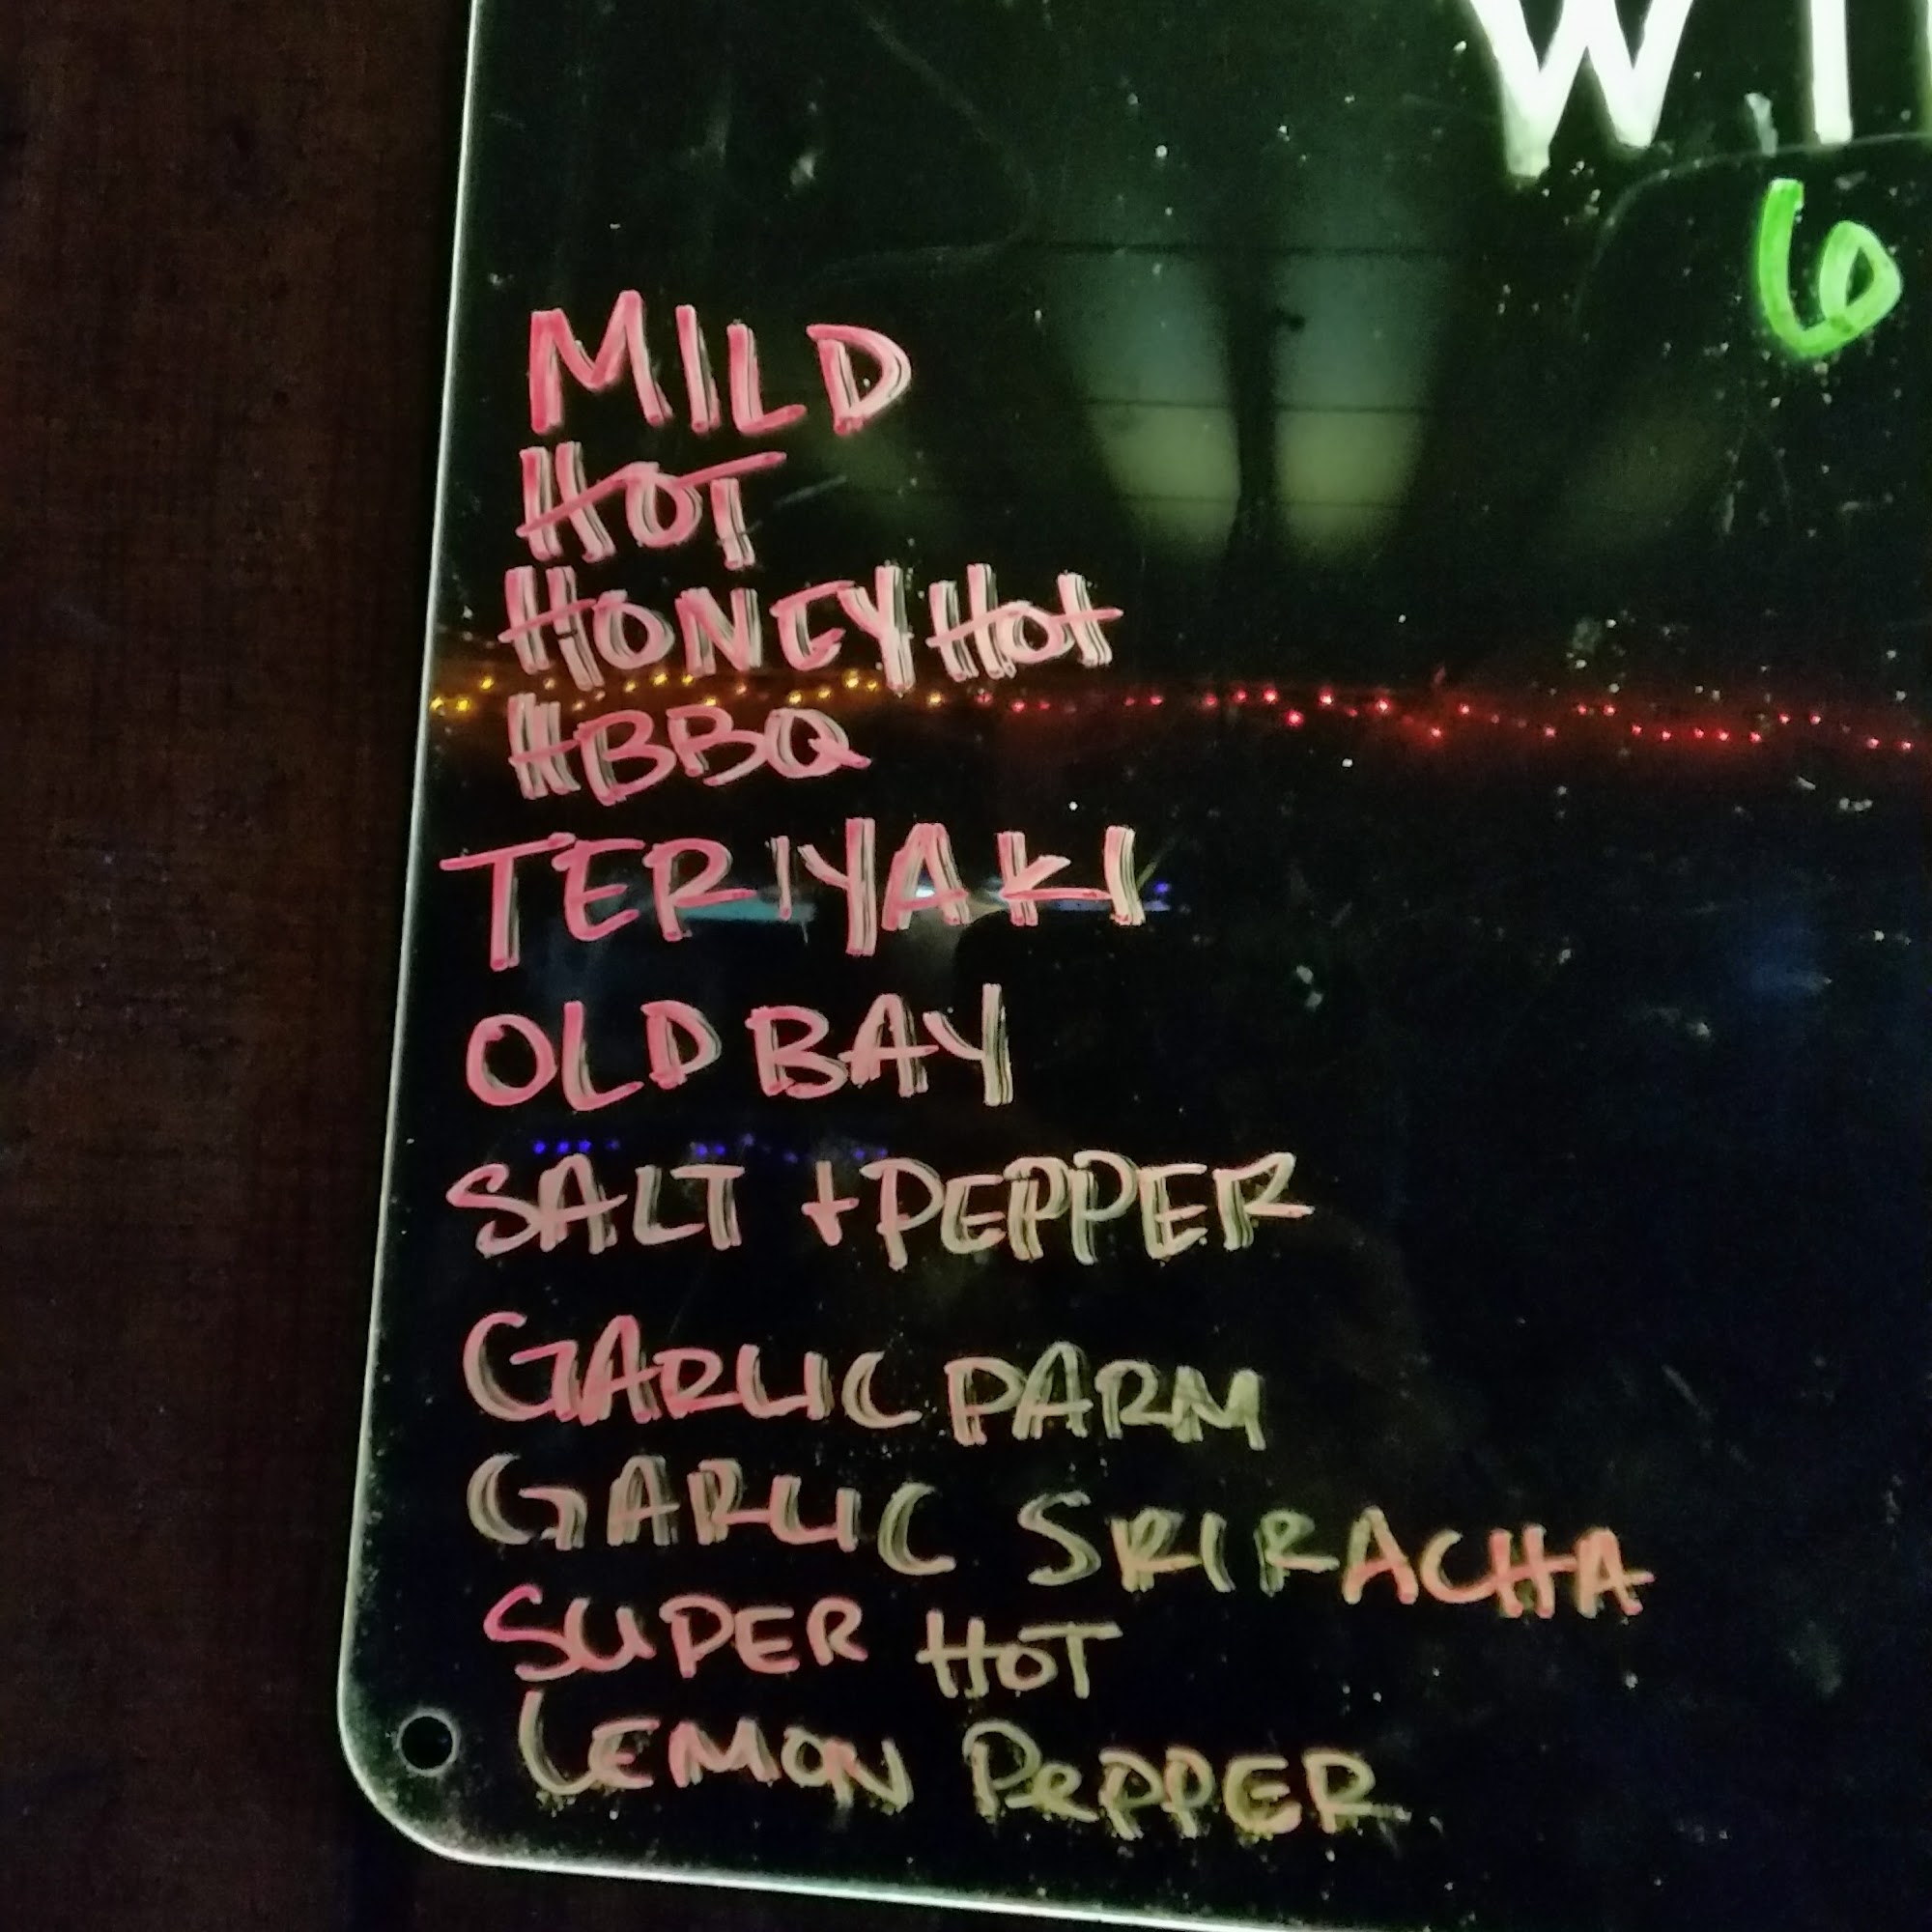 WI
6
MILD
HOT
HONEY HOt
HBBQ
TERIYAKI
OLD BAY
SALT + PEPPER
GARLIC PARM
GARLIC SRIRACHA
SUPER HOT
LEMON PePPER